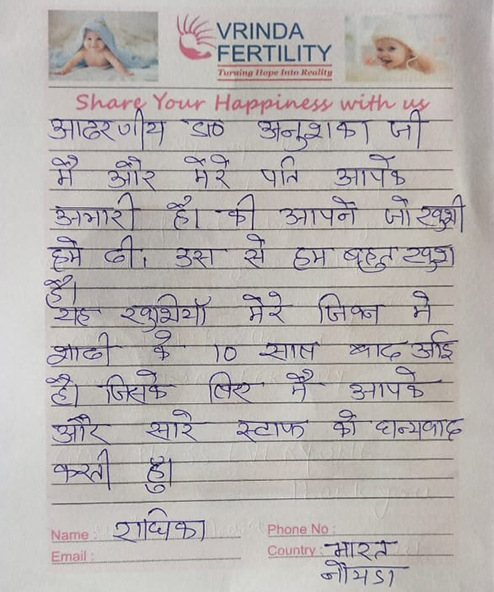 VRINDA
FERTILITY
Turning Hope Into Reality
Share Your Happiness with us
आदरणीय डा० अनुशका जी
मै और मेरे पति आपके
अभारी है। की आपने जो खुशी
हमे दी, उस से हम बहुत खुश
है।
यह खुशियाँ मेरे जिवन मे
शादी के 10 साल बाद आई
है। जिसके लिए मै आपके
और सारे स्टाफ को धन्यवाद
करती हु।
Name : राधिका
Phone No :
Email :
Country : भारत
नोयडा